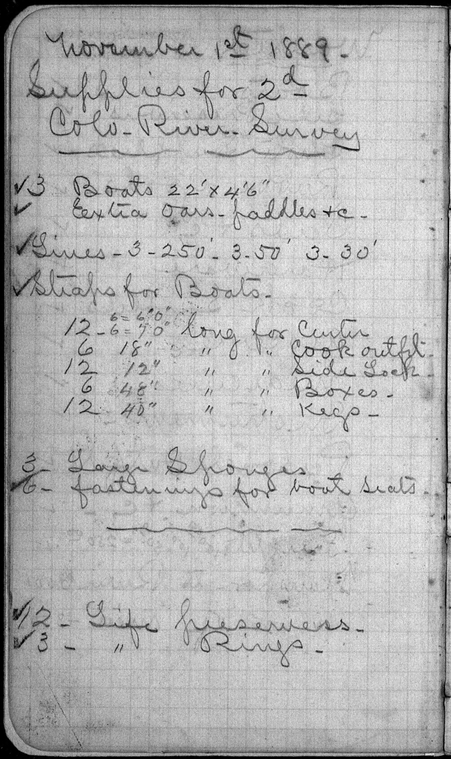 November 1st 1889.
Supplies for 2d
Colo. River. Survey
✓3 Boats 22'x4'6"
✓ Eextra Oars. paddles &c.
✓Lines - 3-250'. 3-50' 3-30'
✓Straps for Boats.
6=6'0"
12-6=7'0" long for Center
6 18" " " Cook outfit.
12 12" " " Side Lock.
6 48" " " Boxes.
12 40" " " Kegs.
3- Large Sponges
✓6- fastenings for boat seats.
✓12- Life preservers.
✓3- " Rings.